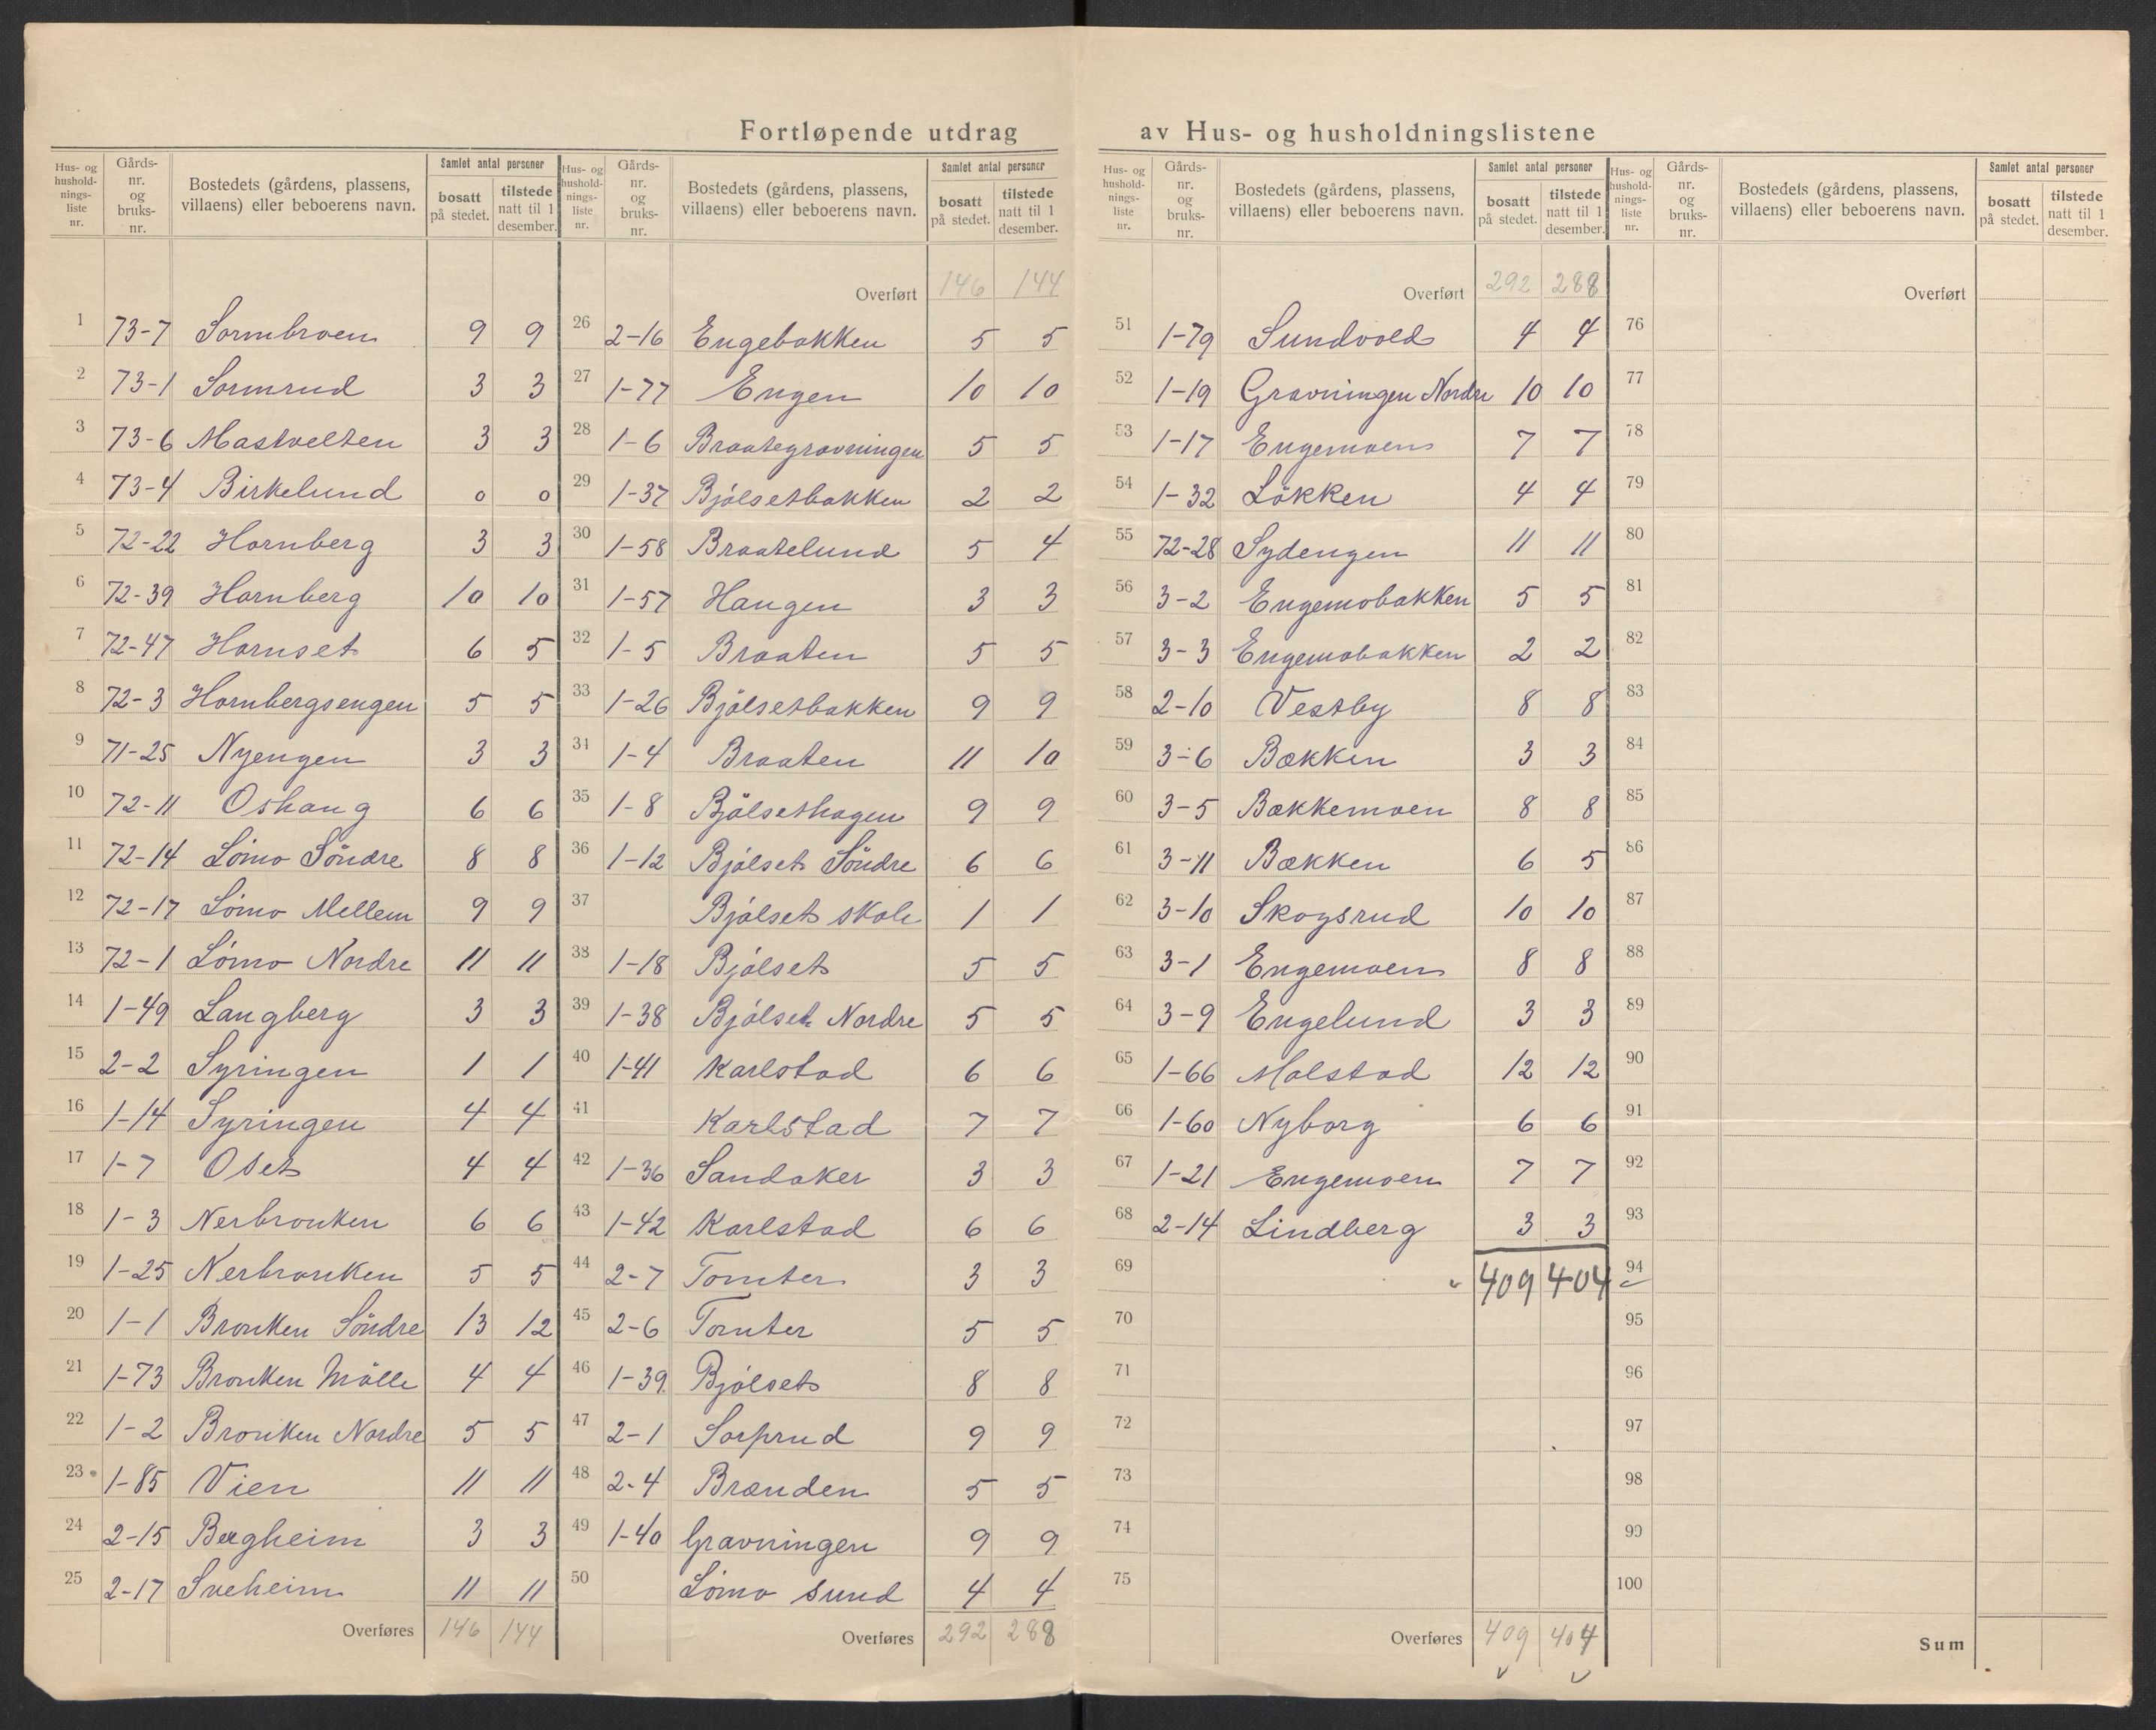 Fortløpende utdrag av Hus- og husholdningslistene
Hus- og hushold-nings-liste nr. | Gårds-nr. og bruks-nr. | Bostedets (gårdens, plassens, villaens) eller beboerens navn. | Samlet antal personer | bosatt på stedet. | tilstede natt til 1 desember.
1 73-7 Sormbroen 9 9
2 73-1 Sormrud 3 3
3 73-6 Mastvelten 3 3
4 73-4 Birkelund 0 0
5 72-22 Hornberg 3 3
6 72-39 Hornberg 10 10
7 72-47 Hornset 6 5
8 72-3 Hornbergsengen 5 5
9 71-25 Nyengen 3 3
10 72-11 Oshaug 6 6
11 72-14 Lömo Söndre 8 8
12 72-17 Lömo Mellem 9 9
13 72-1 Lömo Nordre 11 11
14 1-49 Langberg 3 3
15 2-2 Syringen 1 1
16 1-14 Syringen 4 4
17 1-7 Oset 4 4
18 1-3 Nerbronken 6 6
19 1-25 Nerbronken 5 5
20 1-1 Bronken Söndre 13 12
21 1-73 Bronken Mölle 4 4
22 1-2 Bronken Nordre 5 5
23 1-85 Vien 11 11
24 2-15 Bergheim 3 3
25 2-17 Sveheim 11 11
Overføres 146 144
Hus- og hushold-nings-liste nr. | Gårds-nr. og bruks-nr. | Bostedets (gårdens, plassens, villaens) eller beboerens navn. | Samlet antal personer | bosatt på stedet. | tilstede natt til 1 desember.
Overført 146 144
26 2-16 Engebakken 5 5
27 1-77 Engen 10 10
28 1-6 Braategravningen 5 5
29 1-37 Bjölsetbakken 2 2
30 1-58 Braatelund 5 4
31 1-57 Haugen 3 3
32 1-5 Braaten 5 5
33 1-26 Bjölsetbakken 9 9
34 1-4 Braaten 11 10
35 1-8 Bjölsethagen 9 9
36 1-12 Bjölset Söndre 6 6
37 Bjölset skole 1 1
38 1-18 Bjölset 5 5
39 1-38 Bjölset Nordre 5 5
40 1-41 Karlstad 6 6
41 Karlstad 7 7
42 1-36 Sandaker 3 3
43 1-42 Karlstad 6 6
44 2-7 Tomter 3 3
45 2-6 Tomter 5 5
46 1-39 Bjölset 8 8
47 2-1 Sorprud 9 9
48 2-4 Brænden 5 5
49 1-40 Gravningen 9 9
50 Lömo sund 4 4
Overføres 292 288
Hus- og hushold-nings-liste nr. | Gårds-nr. og bruks-nr. | Bostedets (gårdens, plassens, villaens) eller beboerens navn. | Samlet antal personer | bosatt på stedet. | tilstede natt til 1 desember.
Overført 292 288
51 1-79 Sundvold 4 4
52 1-19 Gravningen Nordre 10 10
53 1-17 Engemoen 7 7
54 1-32 Lökken 4 4
55 72-28 Sydengen 11 11
56 3-2 Engemobakken 5 5
57 3-3 Engemobakken 2 2
58 2-10 Vestby 8 8
59 3-6 Bækken 3 3
60 3-5 Bækkemoen 8 8
61 3-11 Bækken 6 5
62 3-10 Skogsrud 10 10
63 3-1 Engemoen 8 8
64 3-9 Engelund 3 3
65 1-66 Malstad 12 12
66 1-60 Nyborg 6 6
67 1-21 Engemoen 7 7
68 2-14 Lindberg 3 3
69 409 404
70
71
72
73
74
75
Overføres 409 404
Hus- og hushold-nings-liste nr. | Gårds-nr. og bruks-nr. | Bostedets (gårdens, plassens, villaens) eller beboerens navn. | Samlet antal personer | bosatt på stedet. | tilstede natt til 1 desember.
Overført
76
77
78
79
80
81
82
83
84
85
86
87
88
89
90
91
92
93
94
95
96
97
98
99
100
Sum